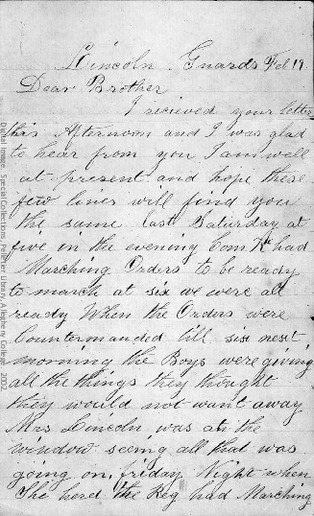 Lincoln Guards Feb 19
Dear Brother
I recieved your letter
this Afternoon and I was glad
to hear from you I am well
at present and hope these
few lines will find you
the same last Saturday at
five in the evening Com K had
Marching Orders to be ready
to march at six we were all
ready When the Orders were
Countermanded till six next
morning the Boys were giving
all the things they thought
they would not want away
Mrs Lincoln was at the
window seeing all that was
going on, friday Night when
She herd the Reg had Marching
Digital Image, Special Collections, Pelletier Library, Allegheny College, 2002.